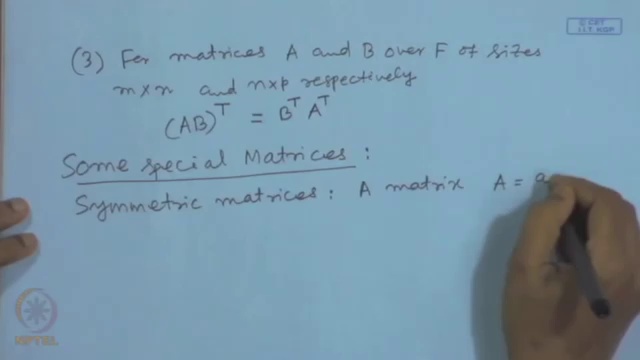 © CET
I.I.T. KGP
(3) For matrices A and B over F of sizes
m×n and n×p respectively
(AB)^T = B^T A^T
Some special Matrices :
Symmetric matrices : A matrix A = a
NPTEL